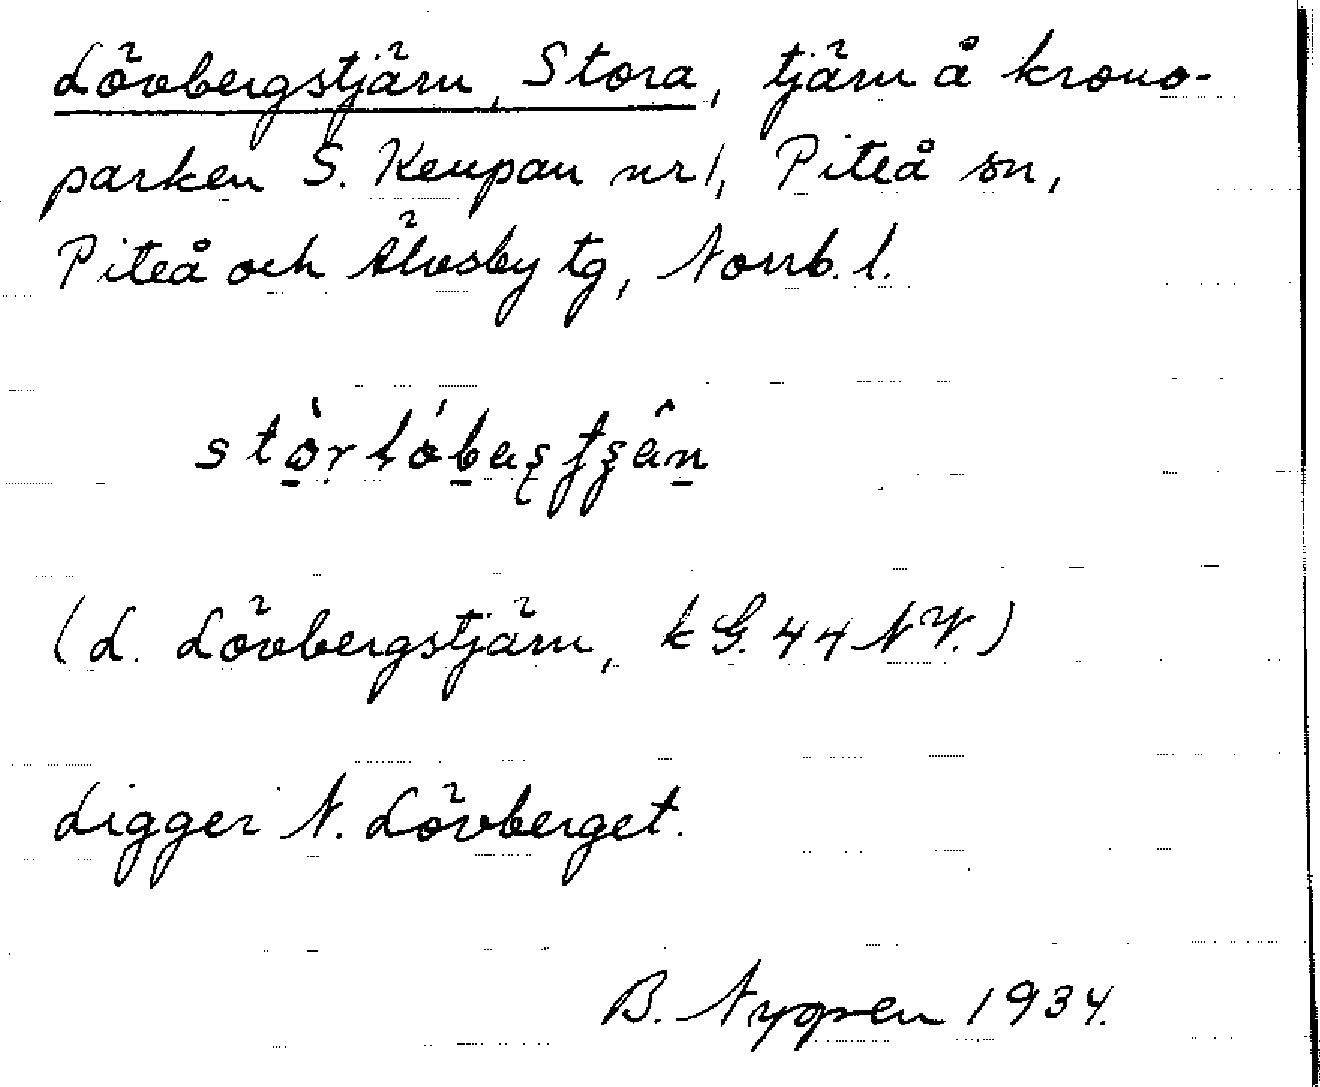 Lövbergstjärn, Stora, tjärn å krono-
parken S. Keupan nr 1, Piteå sn,
Piteå och Älvsby tg, Norrb. l.
(L. Lövbergstjärn, kG. 44 NV.)
Ligger N. Lövberget.
B. Nygren 1934.